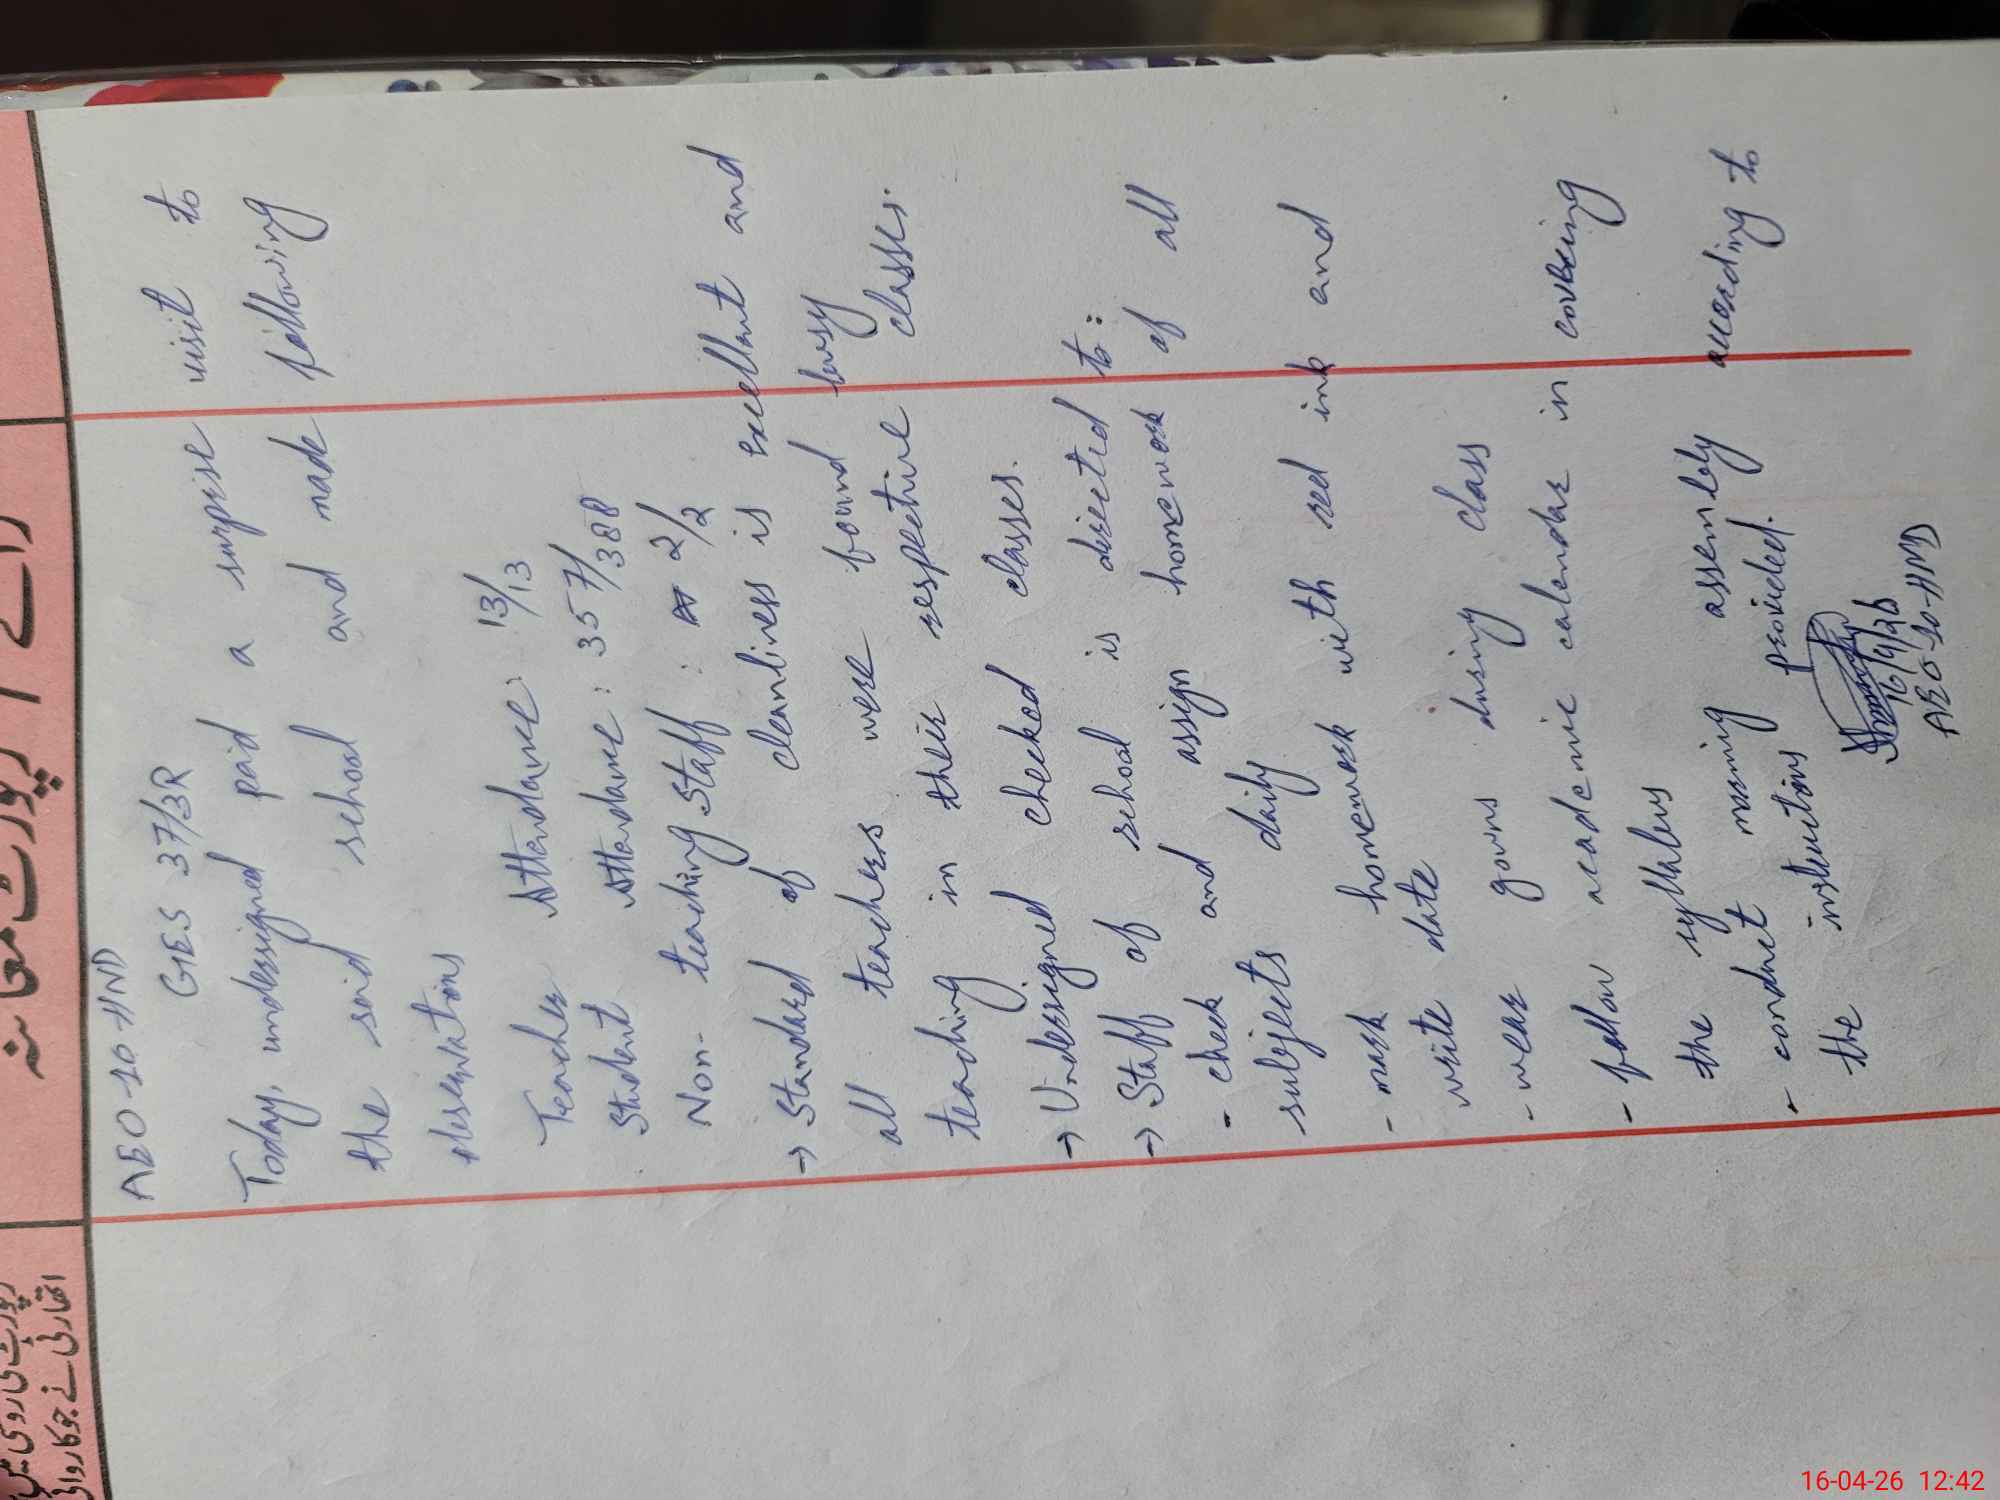 رائے / رپورٹ معائنہ
رپورٹ کی روی میں
اتھارٹی نے جو کاروائی
AEO-10-HND
GES 37/3R
Today, undersigned paid a surprise visit to
the said school and made following
observations
Teacher Attendance: 13/13
Student Attendance: 357/388
Non-teaching Staff: 2/2
→ Standard of cleanliness is excellant and
all teachers were found busy
teaching in their respective classes.
→ Undersigned checked classes.
→ Staff of school is directed to:
- check and assign homework of all
subjects daily
- mark homework with red ink and
write date
- wear gowns during class
- follow academic calendar in covering
the syllabus
- conduct morning assembly according to
the instructions provided.
16/4/26
AEO-10-HND
16-04-26 12:42